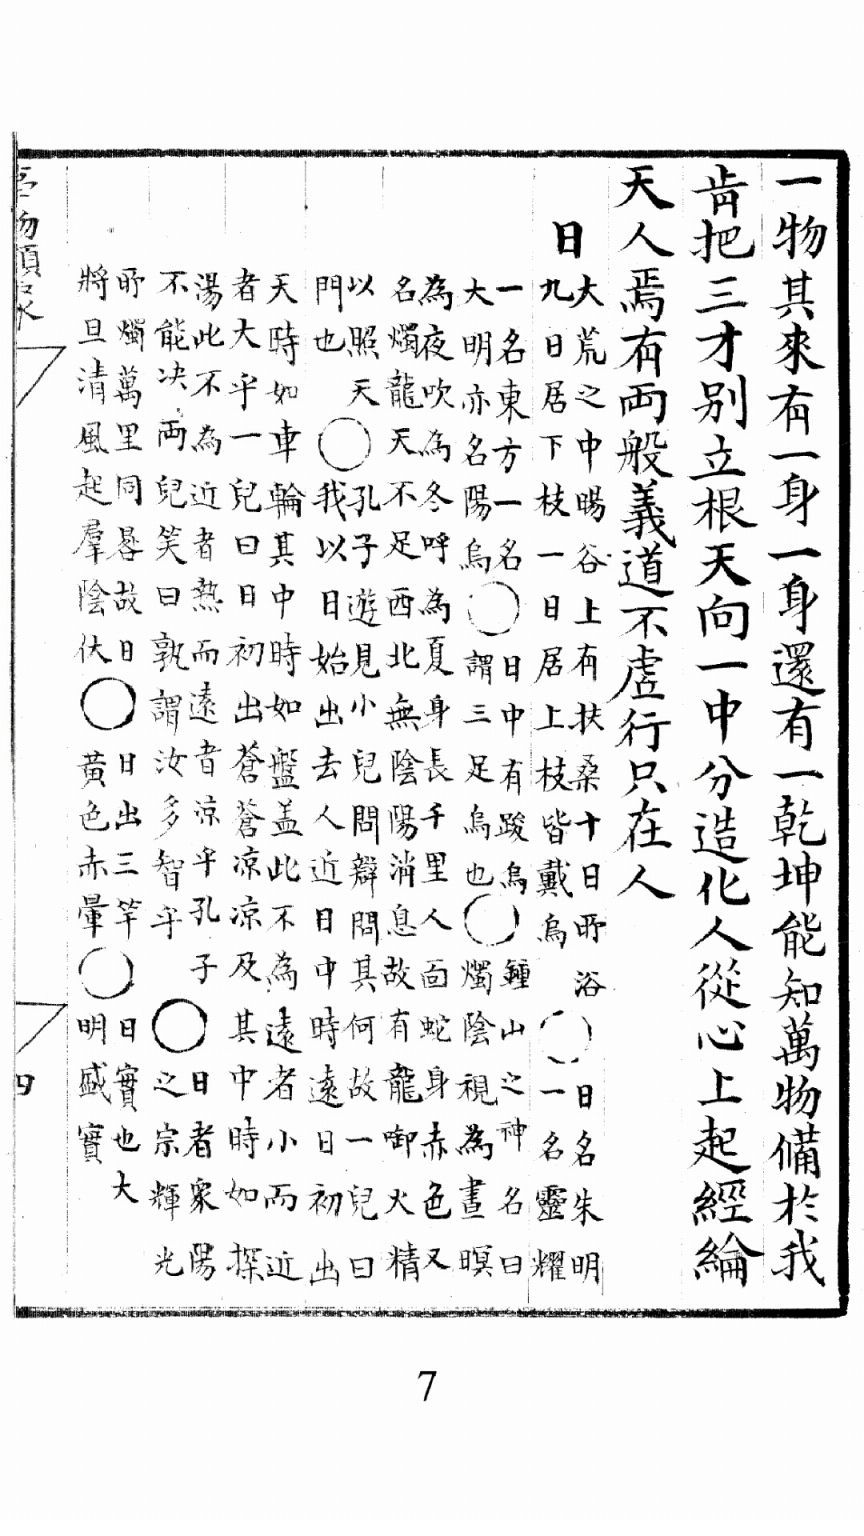 一物其來有一身一身還有一乾坤能知萬物備於我
肯把三才别立根天向一中分造化人從心上起經綸
天人焉有両般義道不虚行只在人
日
大荒之中暘谷上有扶桑十日所浴
九日居下枝一日居上枝皆戴烏
◯日名朱明
一名靈耀
一名東方一名
大明亦名陽烏
◯日中有踆烏
謂三足烏也
◯鍾山之神名曰
燭陰視為晝暝
為夜吹為冬呼為夏身長千里人面蛇身赤色又
名燭龍天不足西北無陰陽消息故有龍啣火精
以照天
門也
◯孔子遊見小兒問辯問其何故一兒曰
我以日始出去人近日中時遠日初出
天時如車輪其中時如盤盖此不為遠者小而近
者大乎一兒曰日初出蒼蒼凉凉及其中時如探
湯此不為近者熱而遠者凉乎孔子
不能决両兒笑曰孰謂汝多智乎
◯日者衆陽
之宗輝光
所燭萬里同晷故日
將旦清風起羣陰伏
◯日出三竿
黄色赤暈
◯日實也大
明盛實
四
7